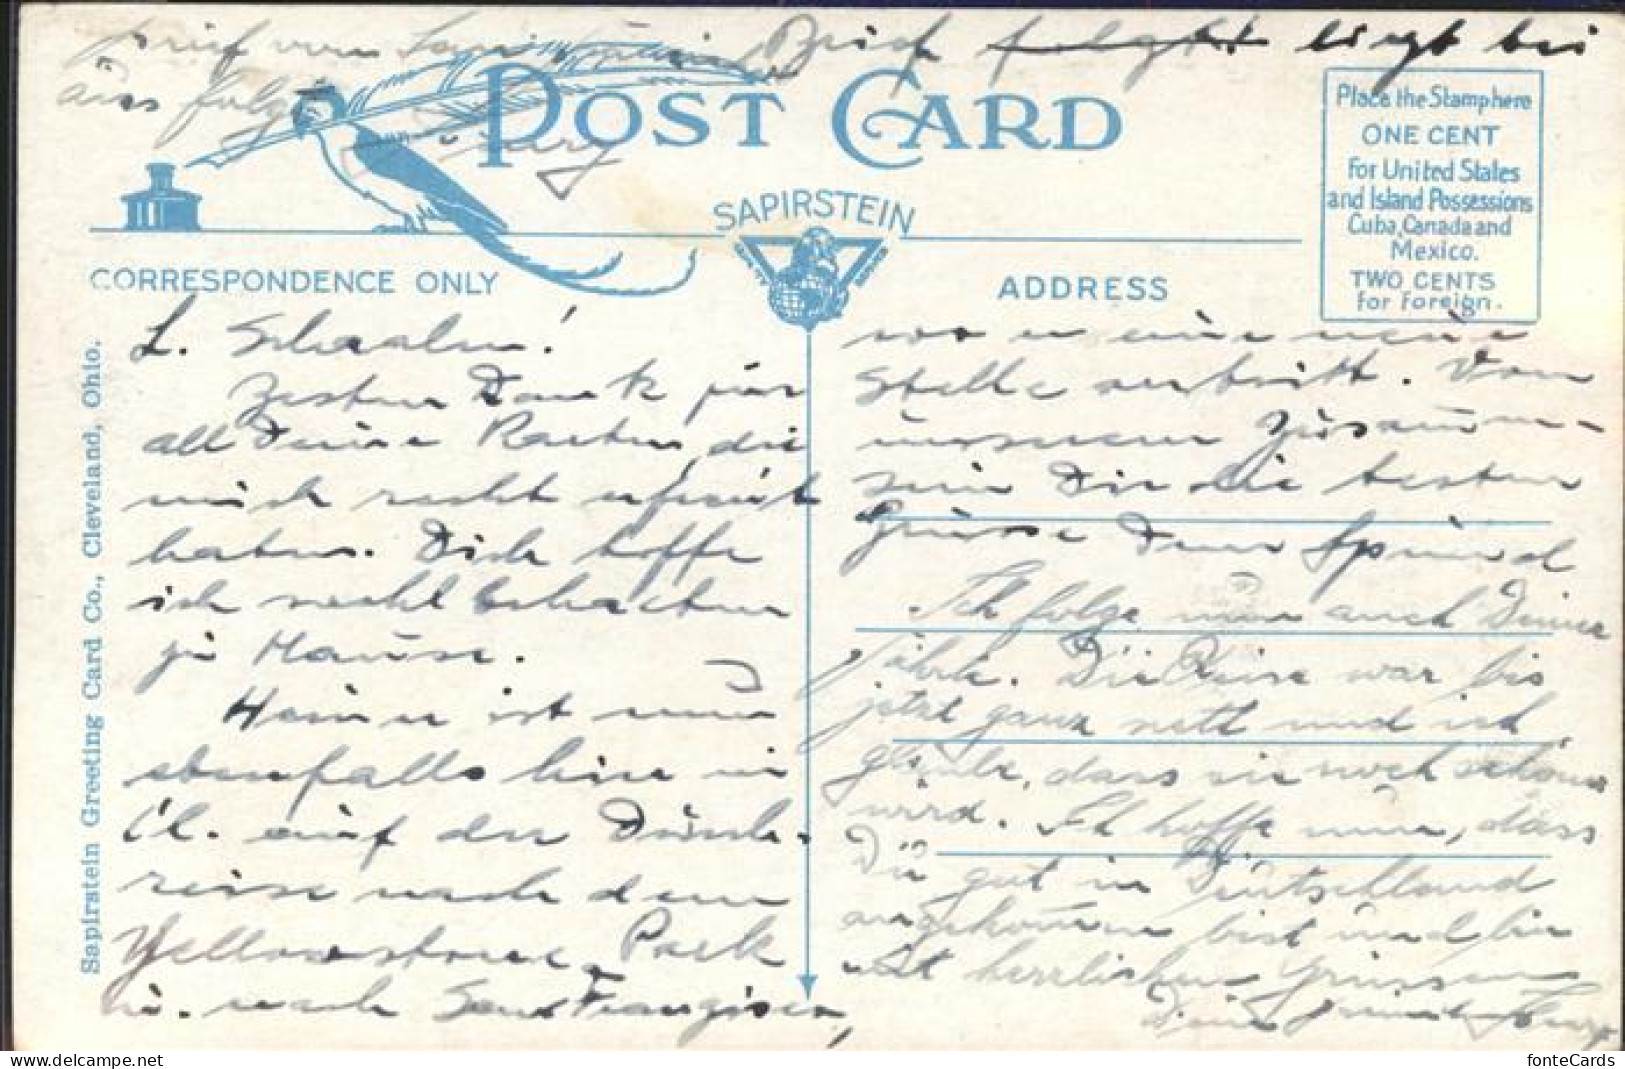 Brief folgt liegt bei
aus folgt
POST CARD
SAPIRSTEIN
Place the Stamp here
ONE CENT
For United States
and Island Possessions
Cuba, Canada and
Mexico.
TWO CENTS
for Foreign.
CORRESPONDENCE ONLY
ADDRESS
Sapirstein Greeting Card Co., Cleveland, Ohio.
L. Schaalm!
Besten Dank für
all Deine Karten, die
mich recht erfreut
haben. Dich hoffe
ich wohlbehalten
zu Hause.
Heiner ist nun
ebenfalls hier in
Ch. auf der Durch-
reise nach dem
Yellowstone Park
u. nach San Franzisco,
wo er eine neue
Stelle vertritt. Von
unserem Zusamm-
sein Dir die besten
Grüsse Dein Freund
Ich folge nun auch Deiner
Fährte. Die Reise war bis
jetzt ganz nett und ich
glaube, dass sie noch schöner
wird. Ich hoffe nun, dass
Du gut in Deutschland
angekommen bist und bin
mit herzlichen Grüssen
Dein
fonteCards